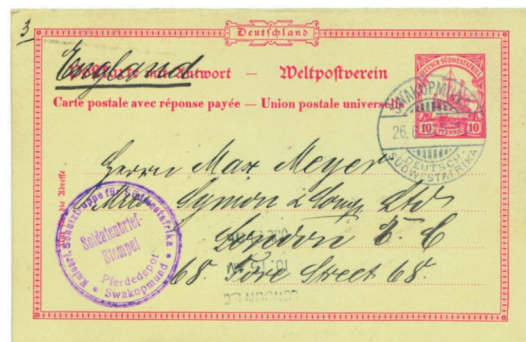 3
Deutschland
England
Postkarte mit Antwort — Weltpostverein
Carte postale avec réponse payée — Union postale universelle
DEUTSCH-SÜDWESTAFRIKA
10 PFENNIG 10
SWAKOPMUND
26.
DEUTSCH-
SÜDWESTAFRIKA
Herrn Max Meyer
Symon & Comp Ltd
London E. C
68. Fore Street 68.
Kaiserl. Schutztruppe für Südwestafrika
Soldatenbrief-
Stempel
Pferdedepot
Swakopmund
LONDON E.C